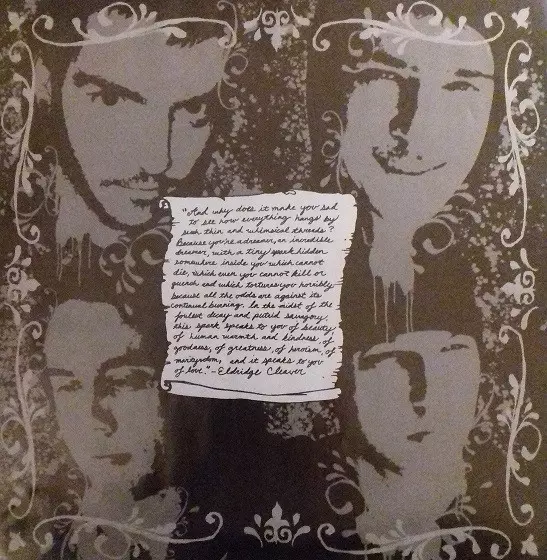 "And why does it make you sad
to see how everything hangs by
such thin and whimsical threads?
Because you're a dreamer, an incredible
dreamer, with a tiny spark hidden
somewhere inside you which cannot
die, which even you cannot kill or
quench and which tortures you horribly
because all the odds are against its
continual burning. In the midst of the
foulest decay and putrid savagery,
this spark speaks to you of beauty,
of human warmth and kindness, of
goodness, of greatness, of heroism, of
martyrdom, and it speaks to you
of love." - Eldridge Cleaver